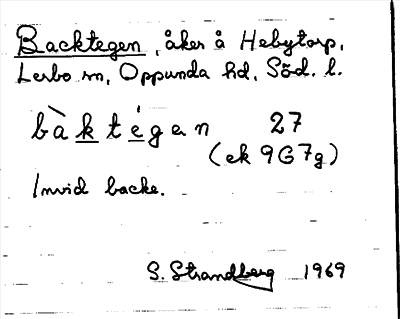 Backtegen, åker å Hebytorp,
Lerbo sn, Oppunda hd, Söd. l.
bàktégen 27
(ek 9G7g)
Invid backe.
S. Strandberg 1969